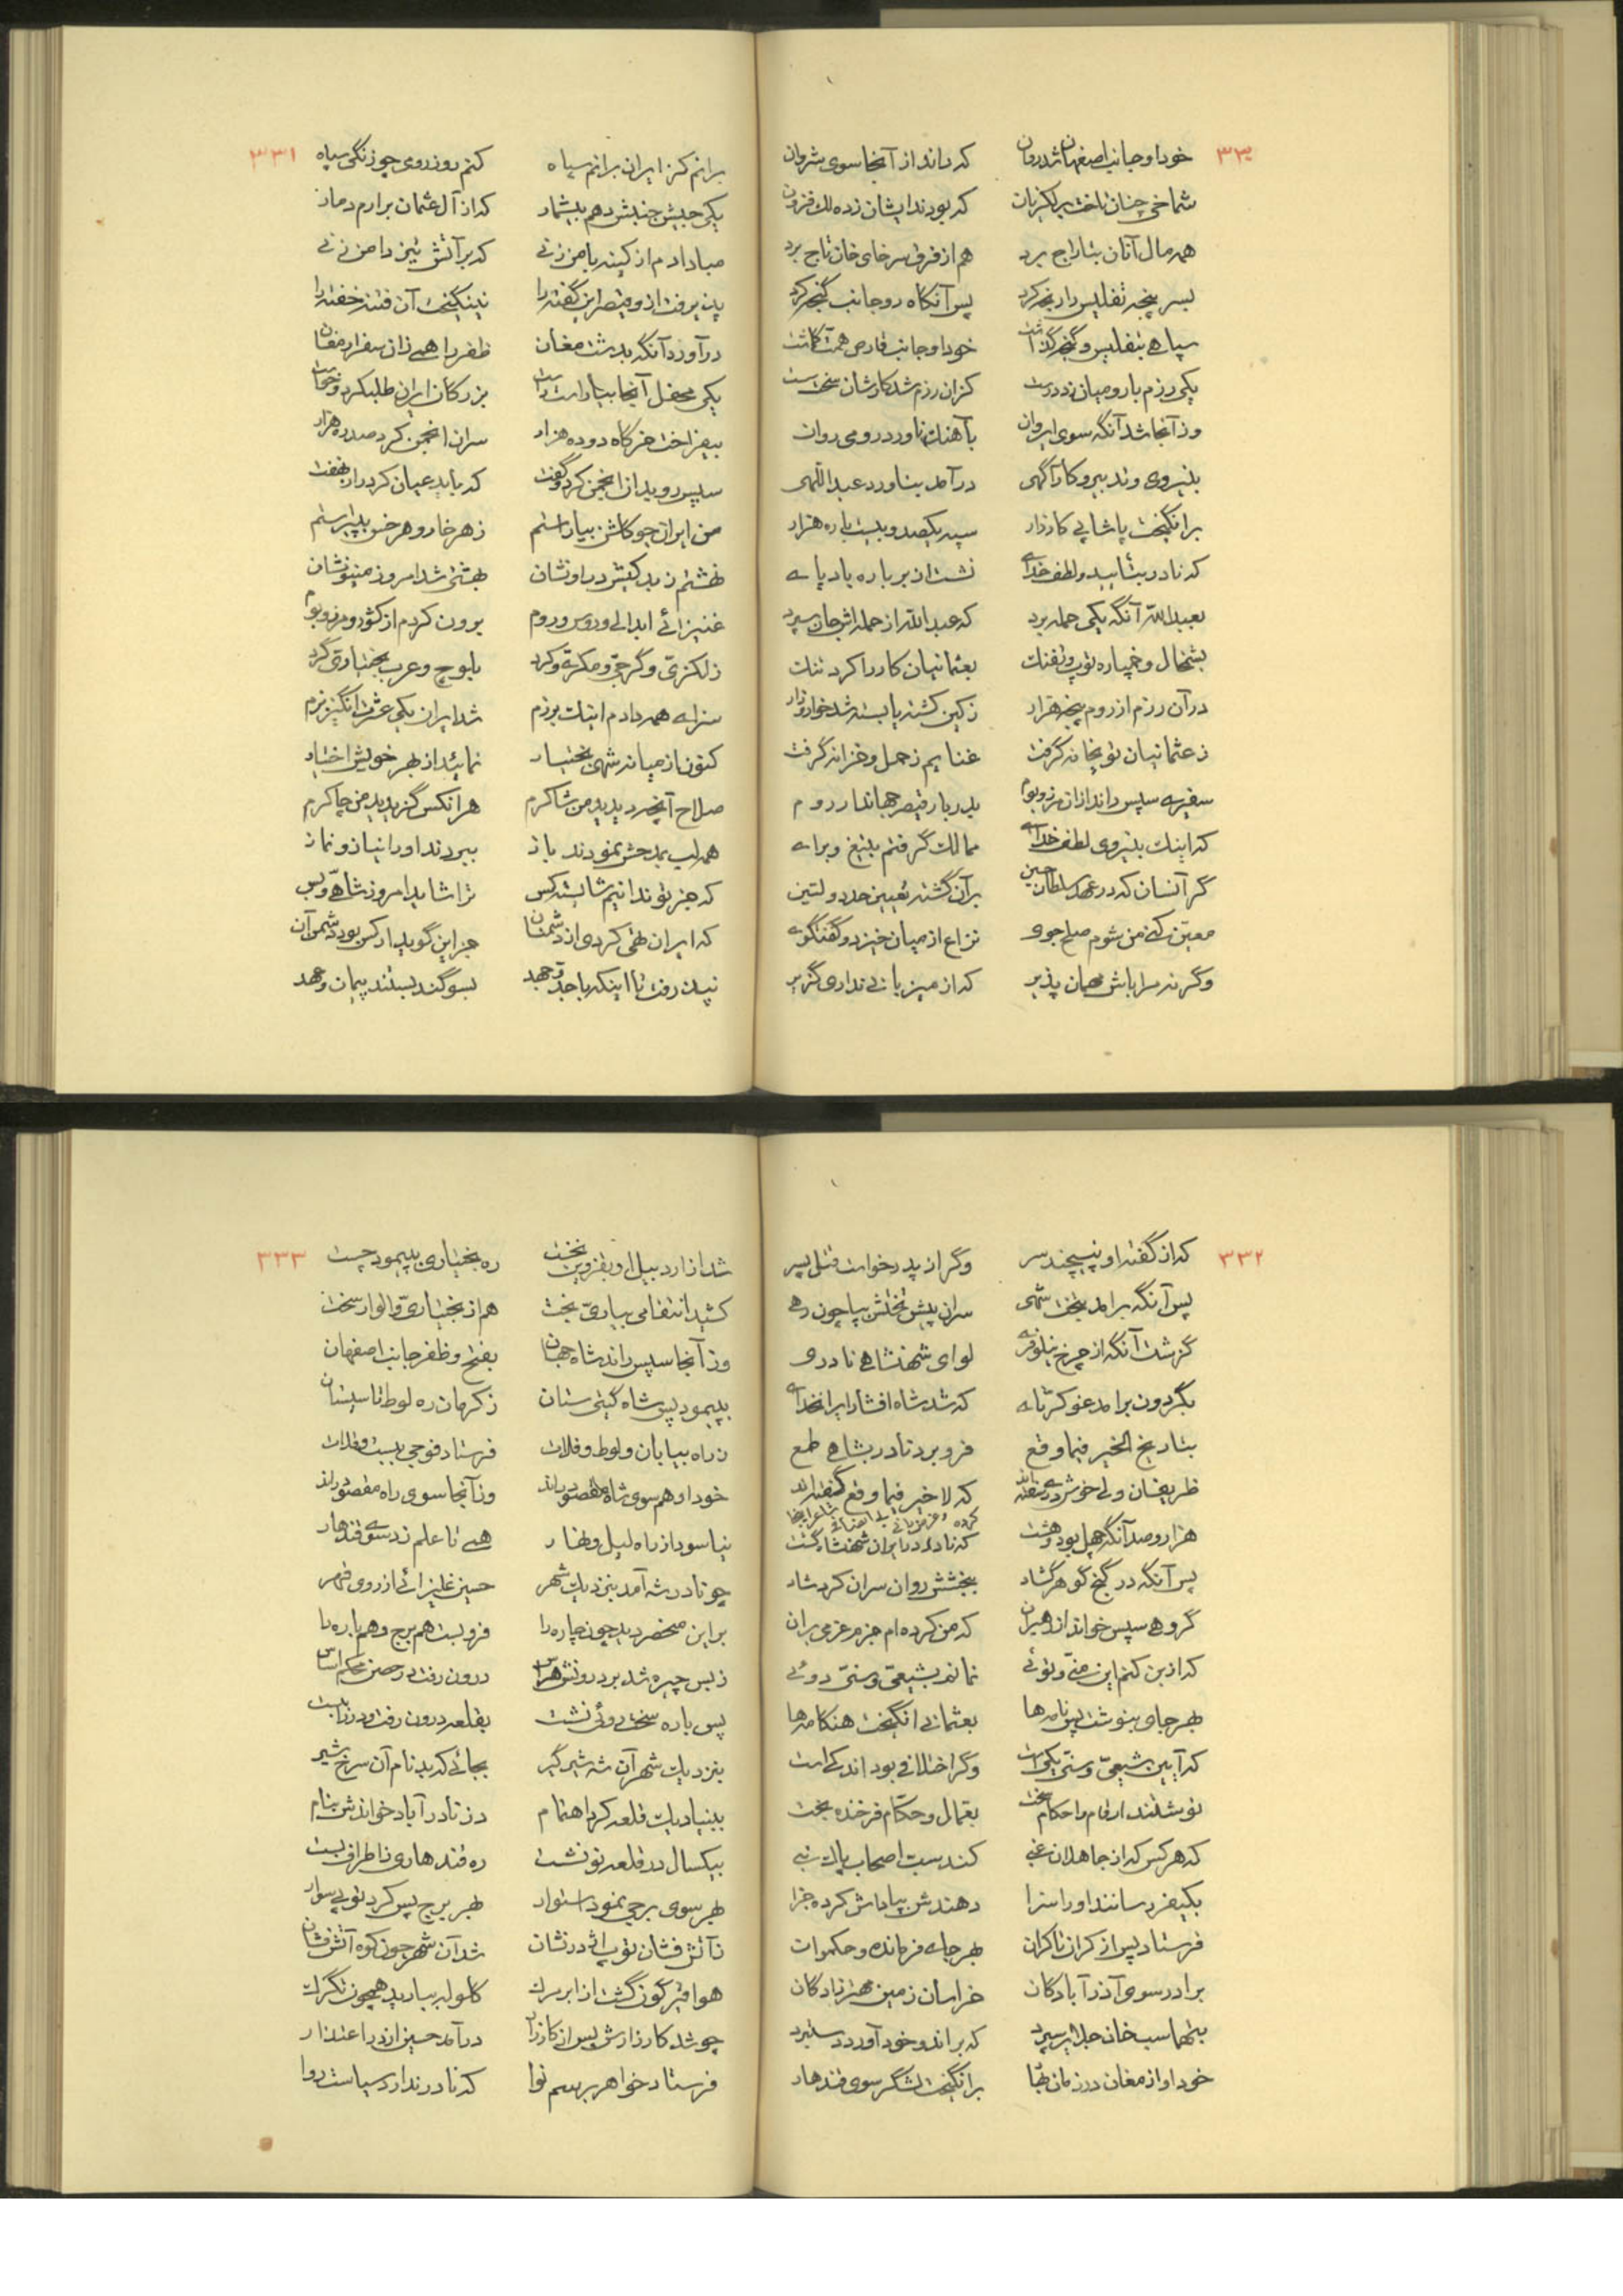 ۳۳۰
خود او جانب اصفهان شد روان که راند از آنجا سوی شروان
شماخی چنان تاخت بر لکزیان که بودند ایشان زده لک فزون
همه مال آنان بتاراج برد هم از فرق سرخای خان تاج برد
بسر پنجه تفلیس را رنجه کرد پس آنگاه رو جانب گنجه کرد
سپاهی بتفلیس و گنجه گذاشت خود او جانب قارص همت گماشت
یکی رزم با رومیان زد درست کزان رزم شد کارشان سخت سست
وز آنجا شد آنگه سوی ایروان بآهنگ ناورد رومی روان
بنیروی و تدبیر و کارآگهی درآمد بناورد عبداللهی
برانگیخت پاشا پی کارزار سپه یکصد و بیست باره هزار
که نادر بتأیید و لطف خدای نشست از بر باره بادپای
بعبدالله آنگه یکی حمله برد که عبدالله از حمله اش جان سپرد
بشمخال و خمپاره توپ و تفنگ بعثمانیان کار را کرد تنگ
در آن رزم از روم پنجه هزار ز کین کشته یا بسته شد خوار و زار
ز عثمانیان توپخانه گرفت غنایم ز حمل و خزانه گرفت
سفیری سپس راند ازان مرز و بوم بدربار قیصر جهاندار روم
که اینک بنیروی لطف خدای ممالک گرفتم بتیغ و برای
گر آنسان که در عهد سلطان حسین بر آن گشته تعیین حد دولتین
معین کنی من شوم صلح جوی نزاع از میان خیزد و گفتگوی
وگرنه سرا باش مهمان پذیر که از میزبانی نداری گزیر
۳۳۱
برانم کز ایران برانم سپاه کنم روز رومی چو زنگی سیاه
یکی جیش جنبش دهم بیشمار که از آل عثمان برارم دمار
مبادا دم از کینه با من زنی که بر آتش تیز دامن زنی
پذیرفت ازو قیصر این گفته را نینگیخت آن فتنه خفته را
درآورد آنگه بدشت مغان ظفر را همی زان سفر ارمغان
یکی محفل آنجا بیاراست راست بزرگان ایران طلب کرد و خواست
بیفراخت خرگاه دو ده هزار سران انجمن کرد صد ره هزار
سپس رو بدان انجمن کرد و گفت که باید عیان کرد راز نهفت
من ایران چو گلشن بیاراستم ز هر خار و هر خس بپیراستم
نهشتم ز بدکیش در او نشان بهشتی شد امروز مینو نشان
غلیزائی ابدالی و روس و روم برون کردم از کشور و مرز و بوم
ز لکزی و گرجی و مکری و کرد بلوچ و عرب بختیاری گرد
سزای همه دادم اینک برزم شد ایران یکی عشرت انگیز بزم
کنون از میانه شهی بختیار نمائید از بهر خویش اختیار
صلاح آنچه دیدید من شاکرم هر آنکس گزیدید من چاکرم
همه لب بمدحش نمودند باز ببردند او را نیاز و نماز
که جز تو ندانیم شایسته کس ترا شاید امروز شاهی و بس
که ایران تهی کردی از دشمنان جز این گوید ار کس بود دشمن آن
نپذرفت تا اینکه با جد و جهد بسوگند بستند پیمان و عهد
۳۳۲
که از گفته او نپیچند سر وگر از پدر خواست قتل پسر
پس آنگه برآمد بتخت شهی سران پیش تختش بپا چون رهی
گزشت آنگه از چرخ نیلوفری لوای شهنشاهی نادری
بگردون برآمد غو کرنای که شد شاه افشار ایران خدای
بتاریخ الخیر فیما وقع فرو برد نادر بشاهی طمع
ظریفان ولی خوش دری سفته اند که لا خیر فیما وقع گفته اند
هزار و صد آنگه چهل بود و هشت که نادر در ایران شهنشاه گشت
پس آنگه در گنج گوهر گشاد ببخشش روان سران کرد شاد
گروهی سپس خواند از رهبران که من کرده ام جزم عزمی بر آن
که از بن کنم این منی و توئی نماند بشیعی و سنی دوئی
بهر جای بنوشت پس نامه ها بعثمانی انگیخت هنگامه ها
که آیین شیعی و سنی یکیست وگر اختلافی بود اندکیست
نوشتند ارقام و احکام سخت بعمال و حکام فرخنده بخت
که هر کس که از جاهلان غبی کند سب اصحاب پاک نبی
بکیفر رسانند او را سزا دهندش بپاداش کرده جزا
فرستاد پس از کران تا کران بهر جای فرمانده و حکمران
برادر سوی آذرآبادگان خراسان زمین مهتر زادگان
بطهماسب خان جلایر سپرد که براند و خود آورد دستبرد
خود او از مغان در زمان بتا برانگیخت لشگر سوی قندهار
۳۳۳
شد از اردبیل او بقزوین نخست ره بختیاری بپیمود چست
کشید انتقامی بیاری بخت هم از بختیاری و الوار سخت
وز آنجا سپس راند شاه جهان بفتح و ظفر جانب اصفهان
بپیمود پس شاه گیتی ستان ز کرمان ره لوط تا سیستان
ز راه بیابان و لوط و فلات فرستاد فوجی ببست و قلات
خود او هم سوی شاه مقصود راند وز آنجا سوی راه مقصود راند
نیاسود از راه لیل و نهار همی تا علم زد سوی قندهار
چو نادر شه آمد بنزدیک شهر حسین غلیزائی از روی قهر
بر این منحصر دید چون چاره را فرو بست هم برج و هم باره را
ز بس چیره شد بر درونش هراس درون رفت در حصن محکم اساس
پس باره سخت روئی نشست بقلعه درون رفت و در را ببست
بنزدیک شهر آن شه شیرگیر بجائی که بد نام آن سرخ شیر
ببنیاد یک قلعه کرد اهتمام دز نادرآباد خواندش بنام
بیکسال در قلعه نو نشست ره قندهاری ز اطراف بست
بهر سوی برجی نمود استوار بهر برج پس کرد توپی سوار
ز آتش فشان توپ اژدر نشان شد آن شهر چون کوه آتش فشان
هوا قیرگون گشت از ابر مرگ گلوله ببارید همچون تگرگ
چو شد کار زارش پس از کارزار درآمد حسین از در اعتذار
فرستاد خواهر برسم نوا که نادر ندارد سیاست روا